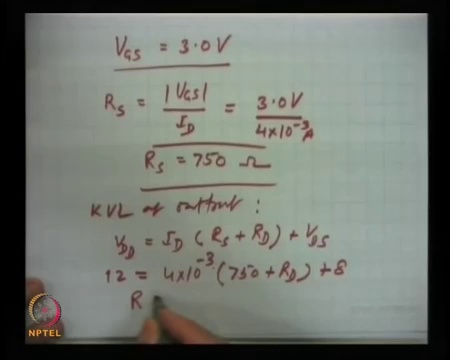 V_GS = 3.0 V
R_S = |V_GS| / I_D = 3.0 V / 4×10⁻³ A
R_S = 750 Ω
KVL at output :
V_DD = I_D ( R_S + R_D ) + V_DS
12 = 4×10⁻³ ( 750 + R_D ) + 8
R
NPTEL